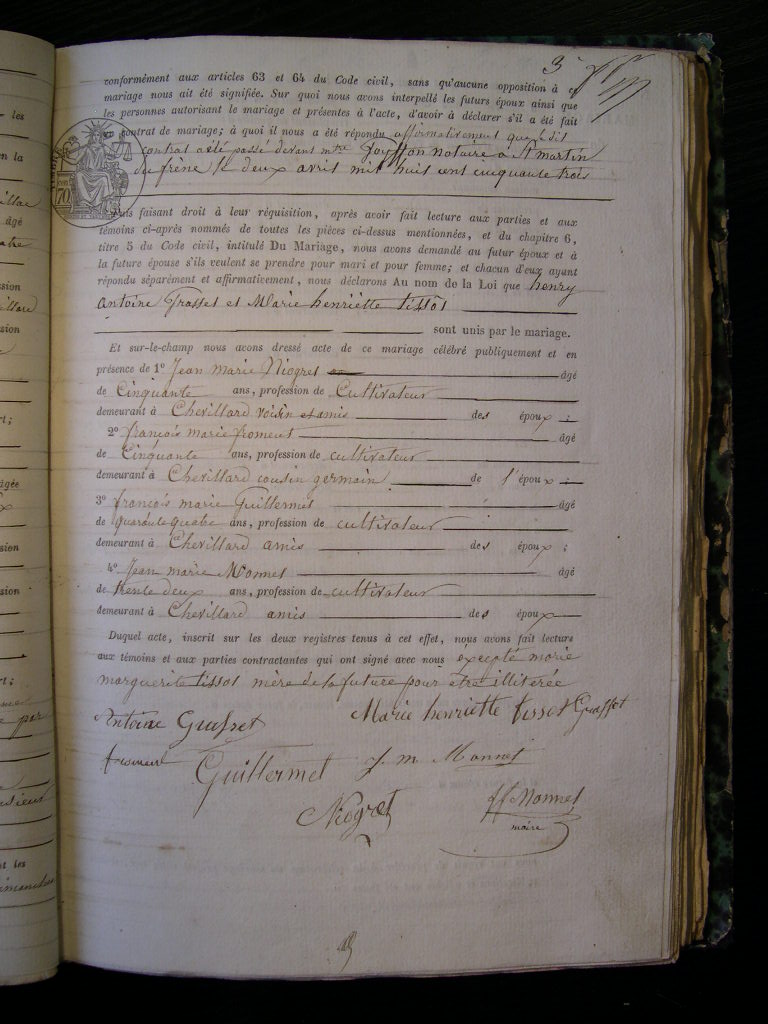 3
conformément aux articles 63 et 64 du Code civil, sans qu'aucune opposition à ce
mariage nous ait été signifiée. Sur quoi nous avons interpellé les futurs époux ainsi que
les personnes autorisant le mariage et présentes à l'acte, d'avoir à déclarer s'il a été fait
un contrat de mariage; à quoi il nous a été répondu affirmativement que le dit
contrat a été passé devant mtre notaire à St martin
du frêne le deux avril mil huit cent cinquante trois
Puis faisant droit à leur réquisition, après avoir fait lecture aux parties et aux
témoins ci-après nommés de toutes les pièces ci-dessus mentionnées, et du chapitre 6,
titre 5 du Code civil, intitulé Du Mariage, nous avons demandé au futur époux et à
la future épouse s'ils veulent se prendre pour mari et pour femme; et chacun d'eux ayant
répondu séparément et affirmativement, nous déclarons Au nom de la Loi que henry
antoine Grasset et Marie henriette tissot
sont unis par le mariage.
Et sur-le-champ nous avons dressé acte de ce mariage célébré publiquement et en
présence de 1º Jean marie Niogret âgé
de Cinquante ans, profession de Cultivateur
demeurant à Chevillard voisin et amis des époux ;
2º françois marie froment âgé
de Cinquante ans, profession de cultivateur
demeurant à Chevillard cousin germain de l'époux ;
3º françois marie Guillermet âgé
de quarante quatre ans, profession de cultivateur
demeurant à Chevillard amis des époux ;
4º Jean marie Monnet âgé
de trente deux ans, profession de cultivateur
demeurant à Chevillard amis des époux
Duquel acte, inscrit sur les deux registres tenus à cet effet, nous avons fait lecture
aux témoins et aux parties contractantes qui ont signé avec nous éxcepté marie
marguerite tissot mère de la future pour être illitérée
Antoine Grasset Marie henriette tissot Grasset
froment Guillermet J m Monnet
Niogret Monnet
maire